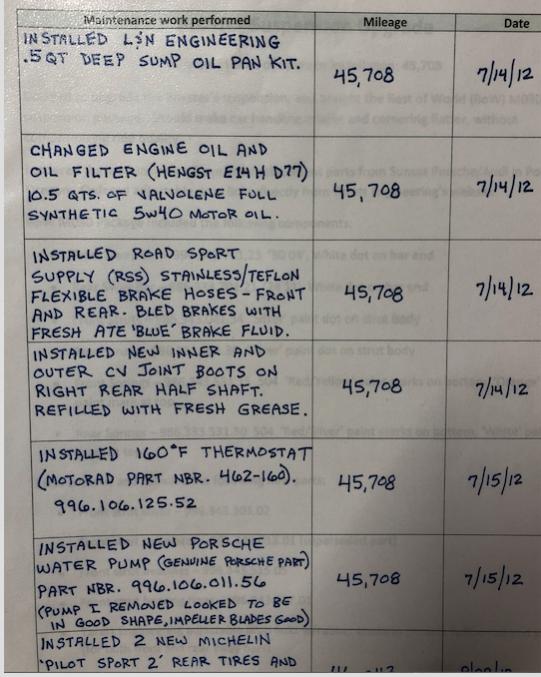 Maintenance work performed Mileage Date
INSTALLED L&N ENGINEERING
.5 QT DEEP SUMP OIL PAN KIT.
45,708 7/14/12
CHANGED ENGINE OIL AND
OIL FILTER (HENGST E14H D77)
10.5 QTS. OF VALVOLENE FULL
SYNTHETIC 5W40 MOTOR OIL.
45,708 7/14/12
INSTALLED ROAD SPORT
SUPPLY (RSS) STAINLESS/TEFLON
FLEXIBLE BRAKE HOSES - FRONT
AND REAR. BLED BRAKES WITH
FRESH ATE 'BLUE' BRAKE FLUID.
45,708 7/14/12
INSTALLED NEW INNER AND
OUTER CV JOINT BOOTS ON
RIGHT REAR HALF SHAFT.
REFILLED WITH FRESH GREASE.
45,708 7/14/12
INSTALLED 160°F THERMOSTAT
(MOTORAD PART NBR. 462-160).
996.106.125.52
45,708 7/15/12
INSTALLED NEW PORSCHE
WATER PUMP (GENUINE PORSCHE PART)
PART NBR. 996.106.011.56
(PUMP I REMOVED LOOKED TO BE
IN GOOD SHAPE, IMPELLER BLADES GOOD)
45,708 7/15/12
INSTALLED 2 NEW MICHELIN
'PILOT SPORT 2' REAR TIRES AND